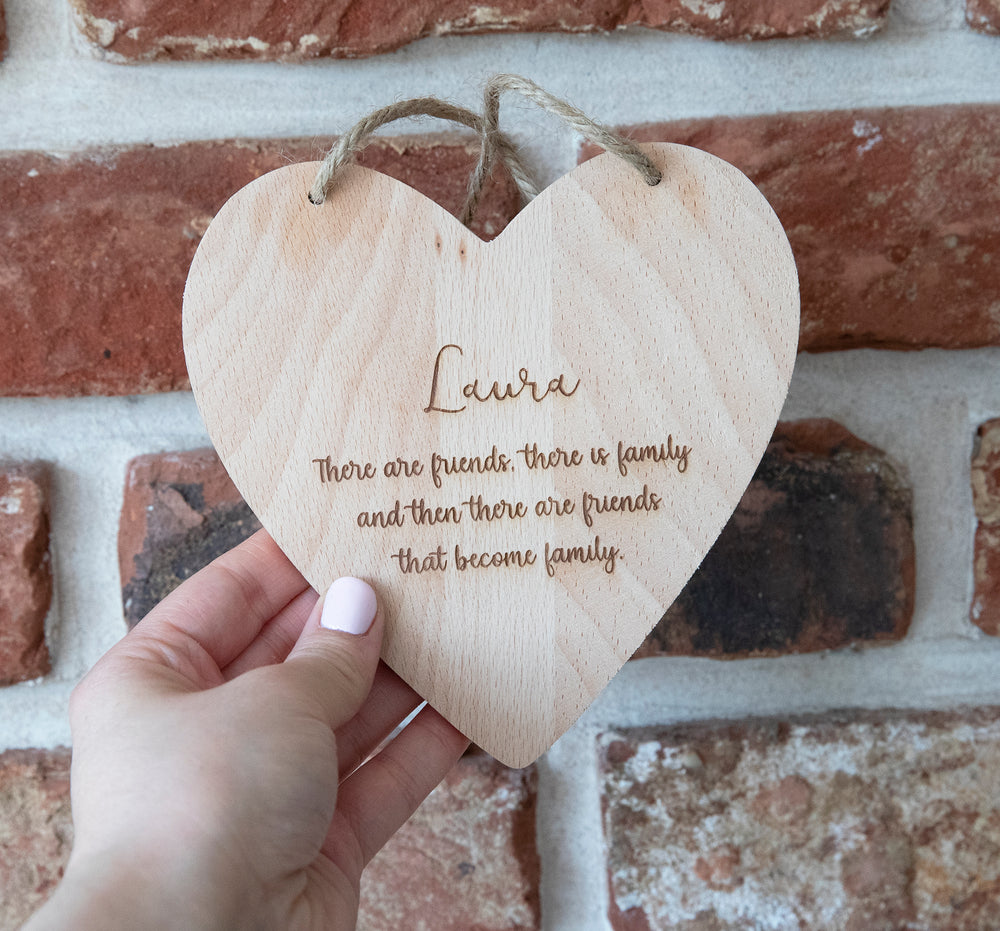 Laura
There are friends, there is family
and then there are friends
that become family.